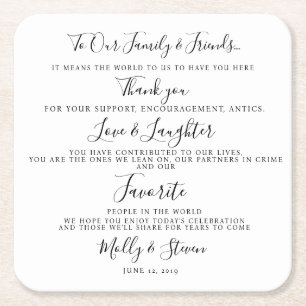 To Our Family & Friends...
IT MEANS THE WORLD TO US TO HAVE YOU HERE
Thank you
FOR YOUR SUPPORT, ENCOURAGEMENT, ANTICS.
Love & Laughter
YOU HAVE CONTRIBUTED TO OUR LIVES,
YOU ARE THE ONES WE LEAN ON, OUR PARTNERS IN CRIME
AND OUR
Favorite
PEOPLE IN THE WORLD
WE HOPE YOU ENJOY TODAY'S CELEBRATION
AND THOSE WE'LL SHARE FOR YEARS TO COME
Molly & Steven
JUNE 12, 2019